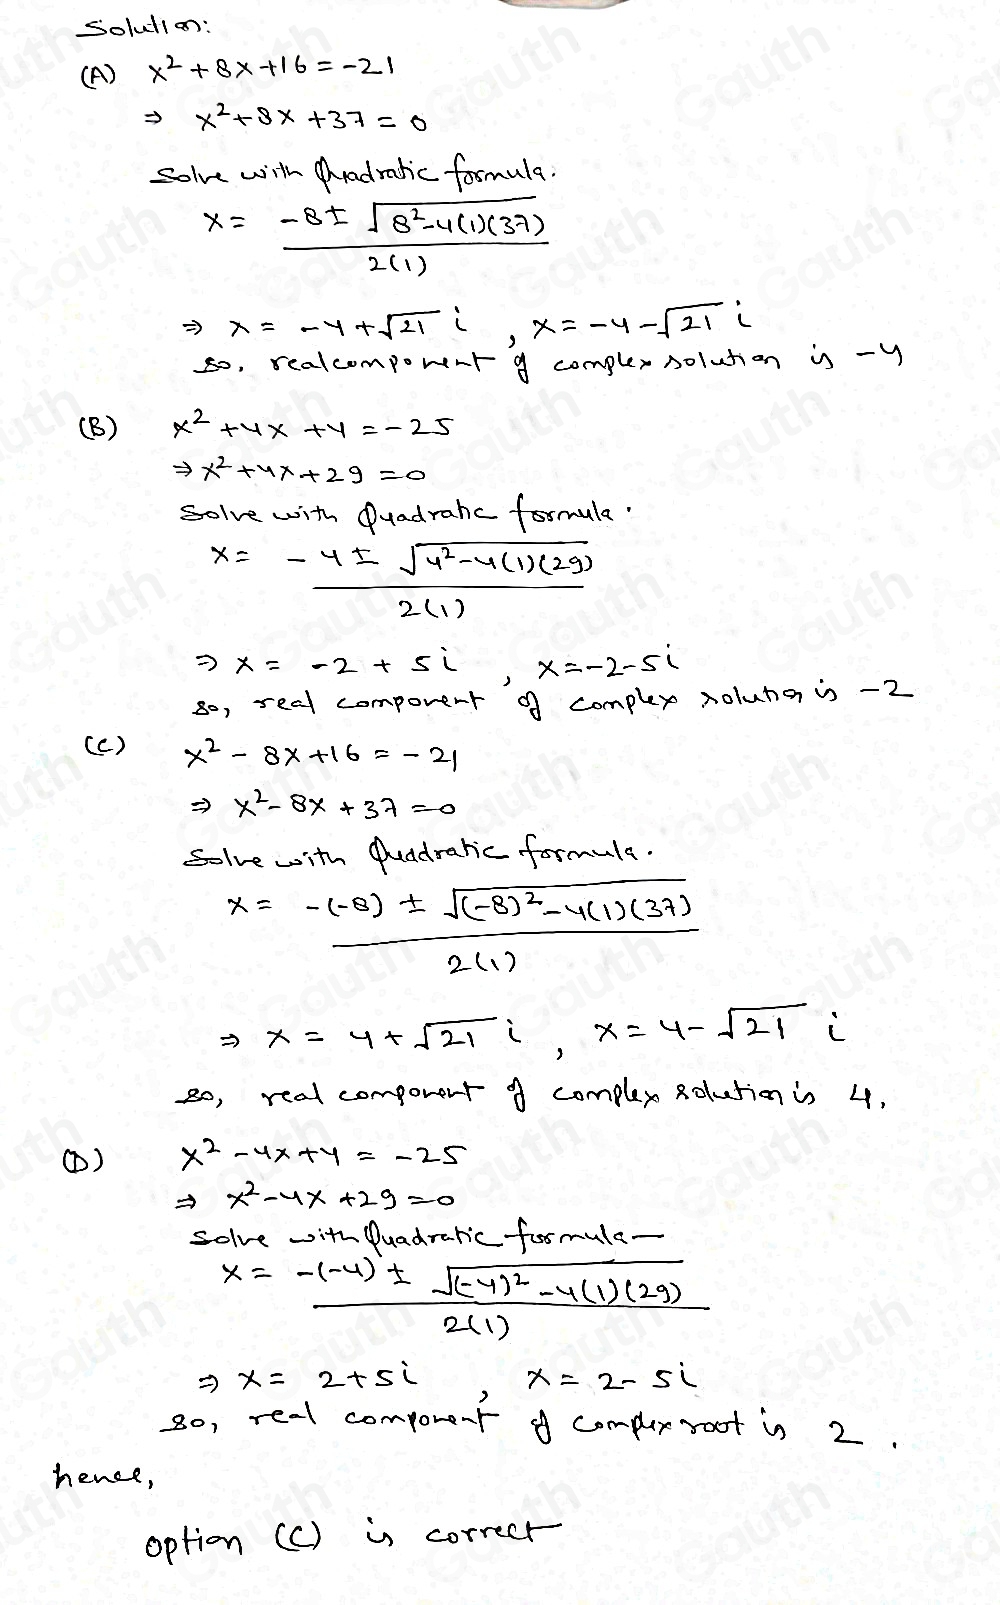 Solution:
(A) x² + 8x + 16 = -21
⇒ x² + 8x + 37 = 0
Solve with Quadratic formula.
x = -8 ± √8² - 4(1)(37)
2(1)
⇒ x = -4 + √21 i , x = -4 - √21 i
so, real component of complex solution is -4
(B) x² + 4x + 4 = -25
⇒ x² + 4x + 29 = 0
Solve with Quadratic formula.
x = -4 ± √4² - 4(1)(29)
2(1)
⇒ x = -2 + 5i , x = -2 - 5i
so, real component of complex solution is -2
(C) x² - 8x + 16 = -21
⇒ x² - 8x + 37 = 0
Solve with Quadratic formula.
x = -(-8) ± √(-8)² - 4(1)(37)
2(1)
⇒ x = 4 + √21 i , x = 4 - √21 i
so, real component of complex solution is 4,
(D) x² - 4x + 4 = -25
⇒ x² - 4x + 29 = 0
Solve with Quadratic formula —
x = -(-4) ± √(-4)² - 4(1)(29)
2(1)
⇒ x = 2 + 5i , x = 2 - 5i
so, real component of complex root is 2.
hence,
option (C) is correct